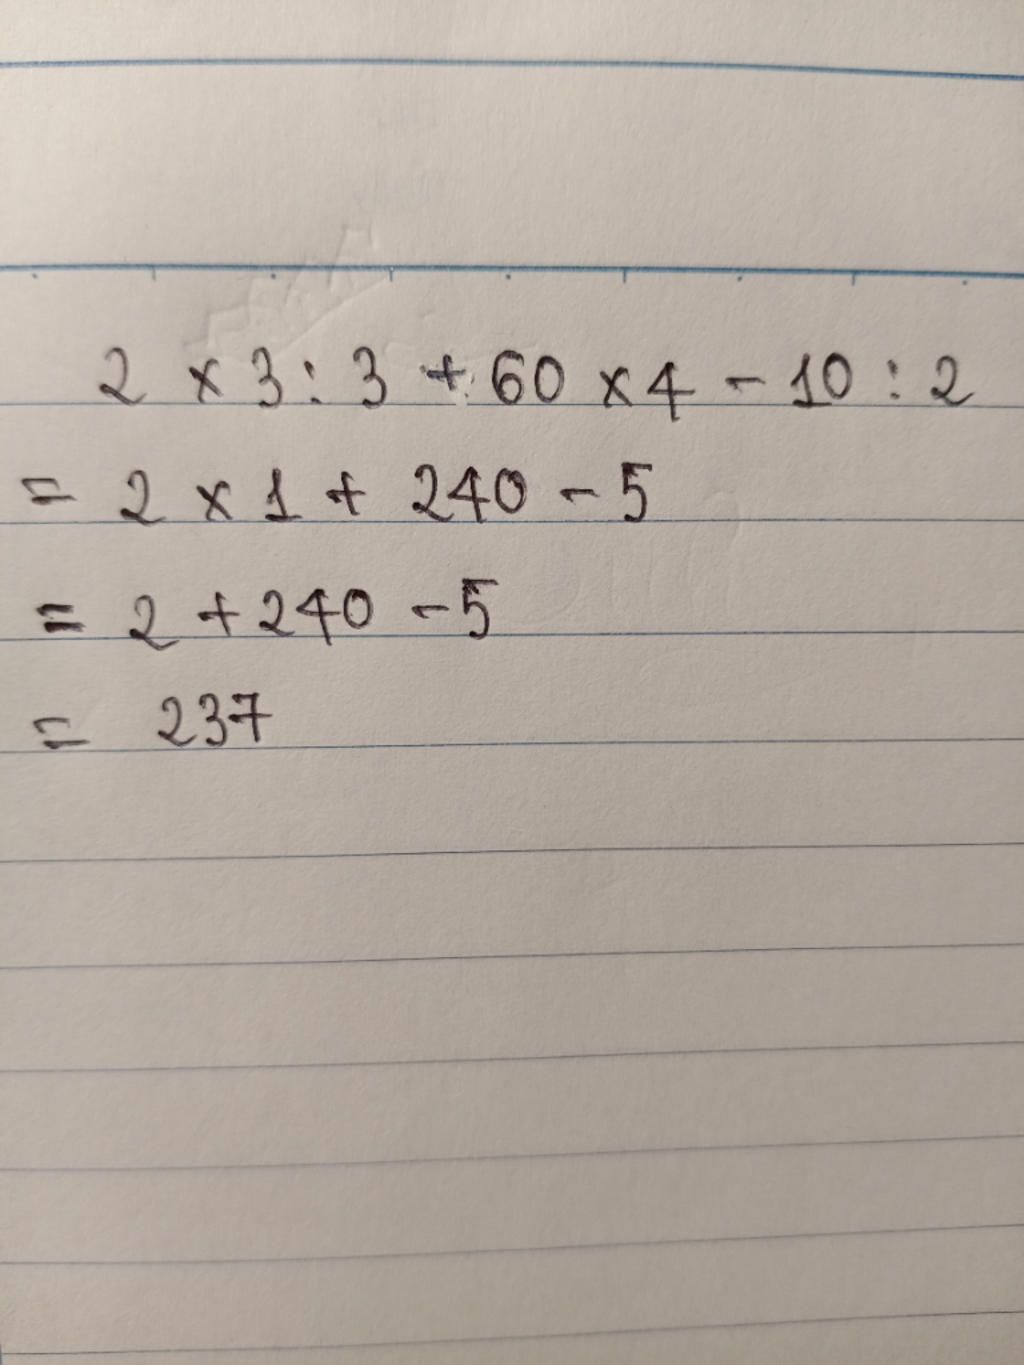 2 x 3 : 3 + 60 x 4 - 10 : 2
= 2 x 1 + 240 - 5
= 2 + 240 - 5
= 237